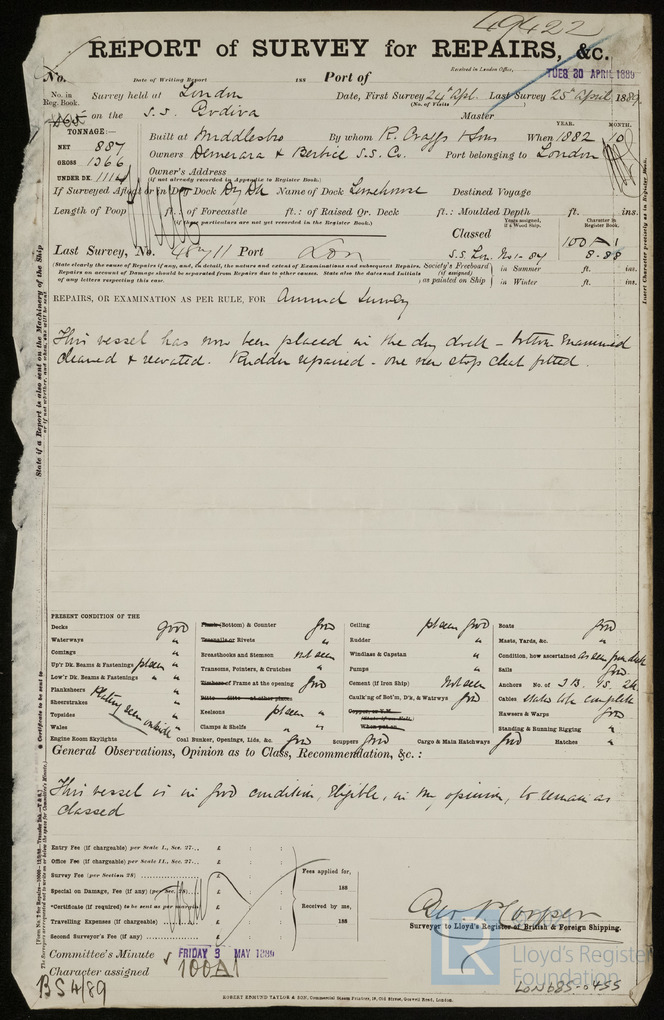 49422
REPORT of SURVEY for REPAIRS, &c.
No. Date of Writing Report 188 Port of Received in London Office, TUES 30 APRIL 1889
No. in Reg. Book. Survey held at London Date, First Survey 24th Apl. Last Survey 25th April 1889
(No. of Visits )
on the S.S. Godiva Master
TONNAGE:— YEAR. MONTH.
NET 887 Built at Middlesbro By whom R. Craggs & Sons When 1882 10
GROSS 1366 Owners Demerara & Berbice S.S. Co. Port belonging to London
UNDER DK. 1114 Owner's Address
(if not already recorded in Appendix to Register Book.)
If Surveyed Afloat or in Dry Dock Dry Dk Name of Dock Limehouse Destined Voyage
Length of Poop ft.: of Forecastle ft.: of Raised Qr. Deck ft.: Moulded Depth ft. ins.
(if the particulars are not yet recorded in the Register Book.)
Years assigned, if a Wood Ship. Character in Register Book.
Classed 100 A 1
Last Survey, No. Port Lon S.S. Lon. No 1-87 8-88
(State clearly the cause of Repairs if any, and, in detail, the nature and extent of Examinations and subsequent Repairs.
Repairs on account of Damage should be separated from Repairs due to other causes. State also the dates and initials
of any letters respecting this case.
Society's Freeboard (if assigned) as painted on Ship in Summer ft. ins.
in Winter ft. ins.
REPAIRS, OR EXAMINATION AS PER RULE, FOR Annual Survey
This vessel has now been placed in the dry dock – bottom examined
cleaned & recoated. Rudder repaired – one new stop cleat fitted.
PRESENT CONDITION OF THE
Decks good
Waterways "
Comings "
Up'r Dk. Beams & Fastenings pt seen "
Low'r Dk. Beams & Fastenings " "
Planksheers
Sheerstrakes
Topsides
Wales
Plating seen outside
Engine Room Skylights
Plank (Bottom) & Counter good
Treenails or Rivets "
Breasthooks and Stemson not seen
Transoms, Pointers, & Crutches "
Timbers of Frame at the opening good
Ditto ditto at other places
Keelsons pt seen "
Clamps & Shelfs " "
Coal Bunker, Openings, Lids, &c. good
Ceiling pt seen good
Rudder "
Windlass & Capstan "
Pumps "
Cement (if Iron Ship) Not seen
Caulk'g of Bot'm, D'ks, & Watrwys good
Scuppers good
Cargo & Main Hatchways good
Boats good
Masts, Yards, &c. "
Condition, how ascertained as seen from deck
Sails good
Anchors No. of 3B. 1S. 2K.
Cables stated to be complete
Hawsers & Warps good
Standing & Running Rigging "
Hatches "
General Observations, Opinion as to Class, Recommendation, &c.:
This vessel is in good condition, Eligible, in my opinion, to remain as
classed
Entry Fee (if chargeable) per Scale I., Sec. 27... £ : :
Office Fee (if chargeable) per Scale II., Sec. 27... £ : :
Survey Fee (per Section 28) £ : :
Special on Damage, Fee (if any) (per Sec. 28) £ : :
Certificate (if required) to be sent as per margin £
Travelling Expenses (if chargeable) £ : :
Second Surveyor's Fee (if any) £ : :
Fees applied for, 188
Received by me, 188
Surveyor to Lloyd's Register of British & Foreign Shipping.
Committee's Minute FRIDAY 3 MAY 1889
Character assigned 100A1
BS 4/89
LR Lloyd's Register Foundation
LON685-0455
ROBERT EDMUND TAYLOR & SON, Commercial Steam Printers, 19, Old Street, Goswell Road, London.